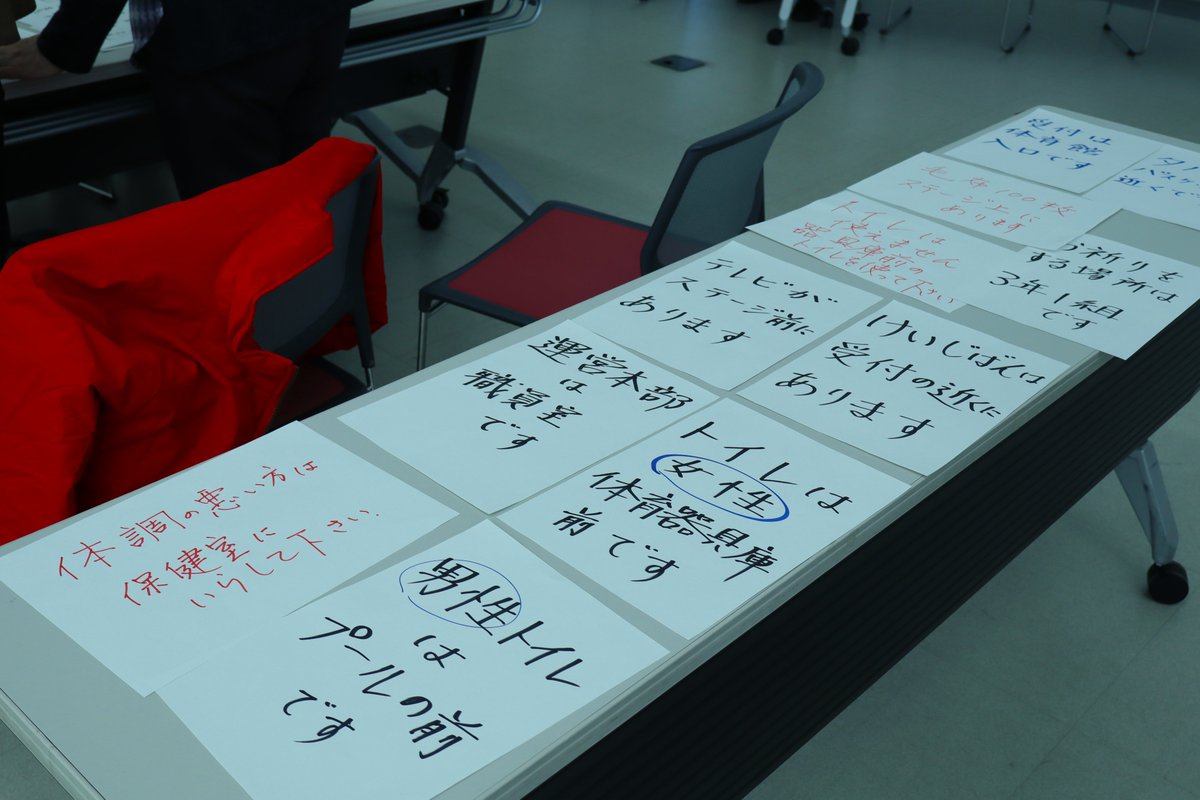 体調の悪い方は
保健室に
いらして下さい
男性トイレ
は
プールの前
です
運営本部
は
職員室
です
トイレは
女性
体育器具庫
前です
テレビが
ステージ前に
あります
けいじばんは
受付の近くに
あります
トイレは
使えません
器具庫前の
トイレを使って下さい
お祈りを
する場所は
3年1組
です
毛布100枚
ステージ上に
あります
受付は
体育館
入口です
近くで